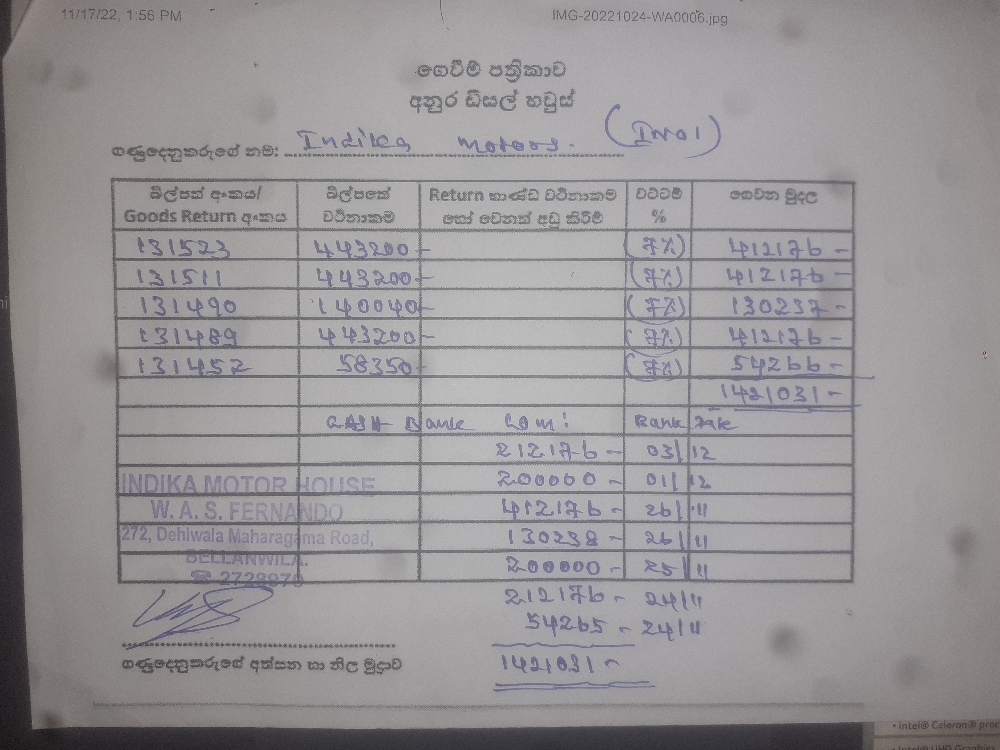 11/17/22, 1:56 PM IMG-20221024-WA0006.jpg
ගෙවීම් පත්‍රිකාව
අනුර ඩීසල් හවුස්
ගණුදෙනුකරුගේ නම: Indika Motors. (IN01)
බිල්පත් අංකය/ බිල්පතේ Return භාණ්ඩ වටිනාකම වට්ටම් ගෙවන මුදල
Goods Return අංකය වටිනාකම හෝ වෙනත් අඩු කිරීම් %
131523 443200- (7%) 412176-
131511 443200- (7%) 412176-
131490 140040- (7%) 130237-
131489 443200- (7%) 412176-
131452 58350- (7%) 54266-
1421031-
CASH Bank Com: Bank Date
212176- 03/12
200000- 01/12
INDIKA MOTOR HOUSE
W. A. S. FERNANDO 412176- 26/11
272, Dehiwala Maharagama Road, 130238- 26/11
BELLANWILA. 200000- 25/11
☎ 2728970
212176- 24/11
54265- 24/11
1421031-
ගණුදෙනුකරුගේ අත්සන හා නිල මුද්‍රාව
intel® Celeron®